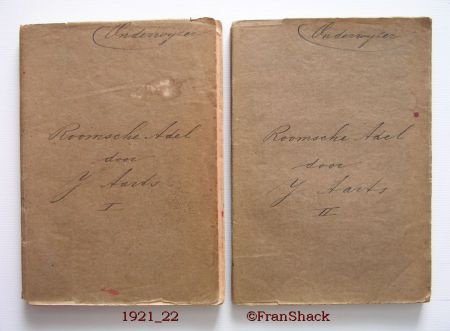 Onderwijzer
Roomsche Adel
door
J Aarts
I
Onderwijzer
Roomsche Adel
door
J Aarts
II
1921_22
©FranShack